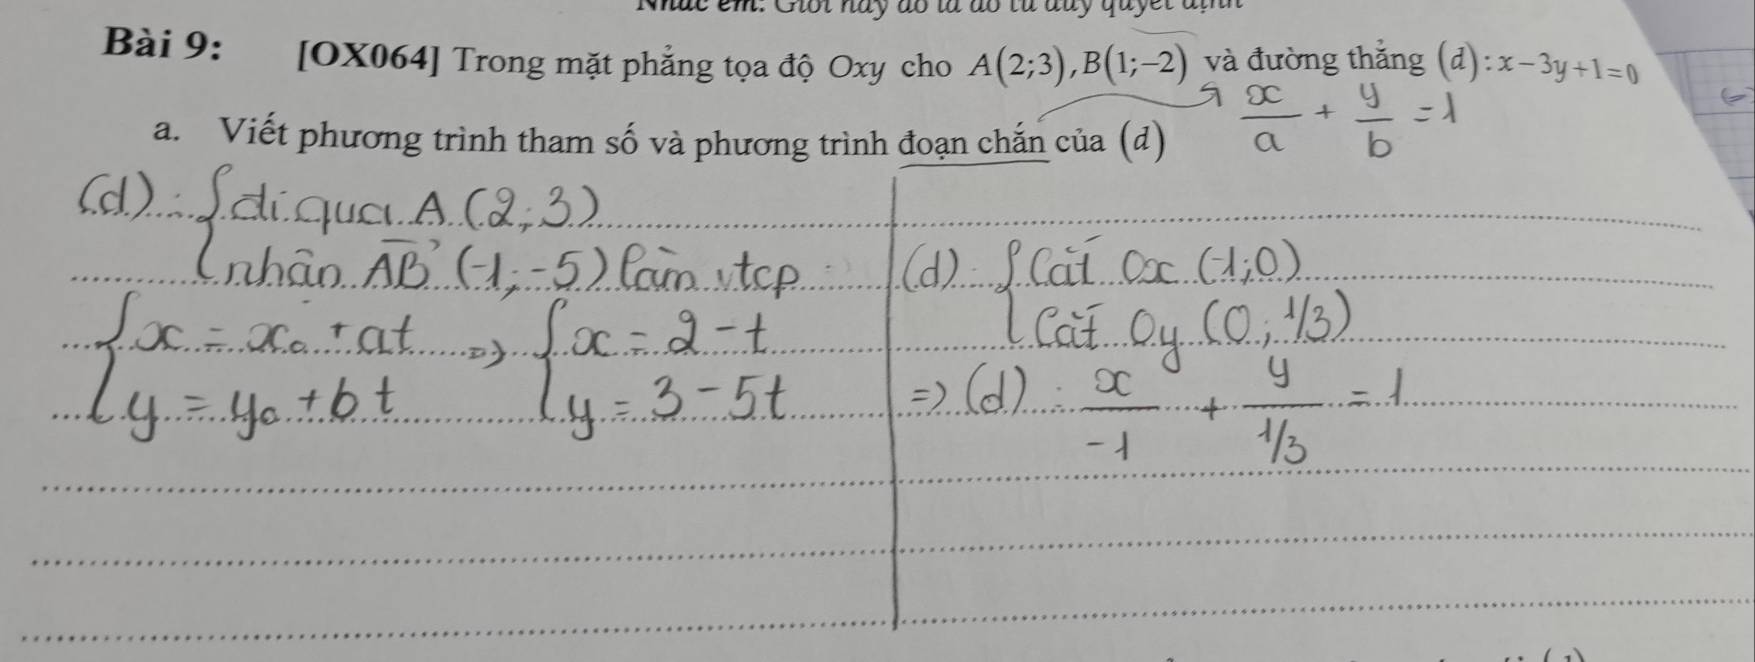 Nhắc em: Giỏi hay dở là do tư duy quyết định
Bài 9: [OX064] Trong mặt phẳng tọa độ Oxy cho A(2;3), B(1;−2) và đường thẳng (d): x−3y+1=0
a. Viết phương trình tham số và phương trình đoạn chắn của (d) x/a + y/b = 1
(d): { đi qua A (2;3)
nhận AB (-1;-5) làm vtcp
{ x = x₀ + at => { x = 2 - t
y = y₀ + bt y = 3 - 5t
(d): { Cắt Ox (-1;0)
Cắt Oy (0; 1/3)
=> (d): x/-1 + y/1/3 = 1